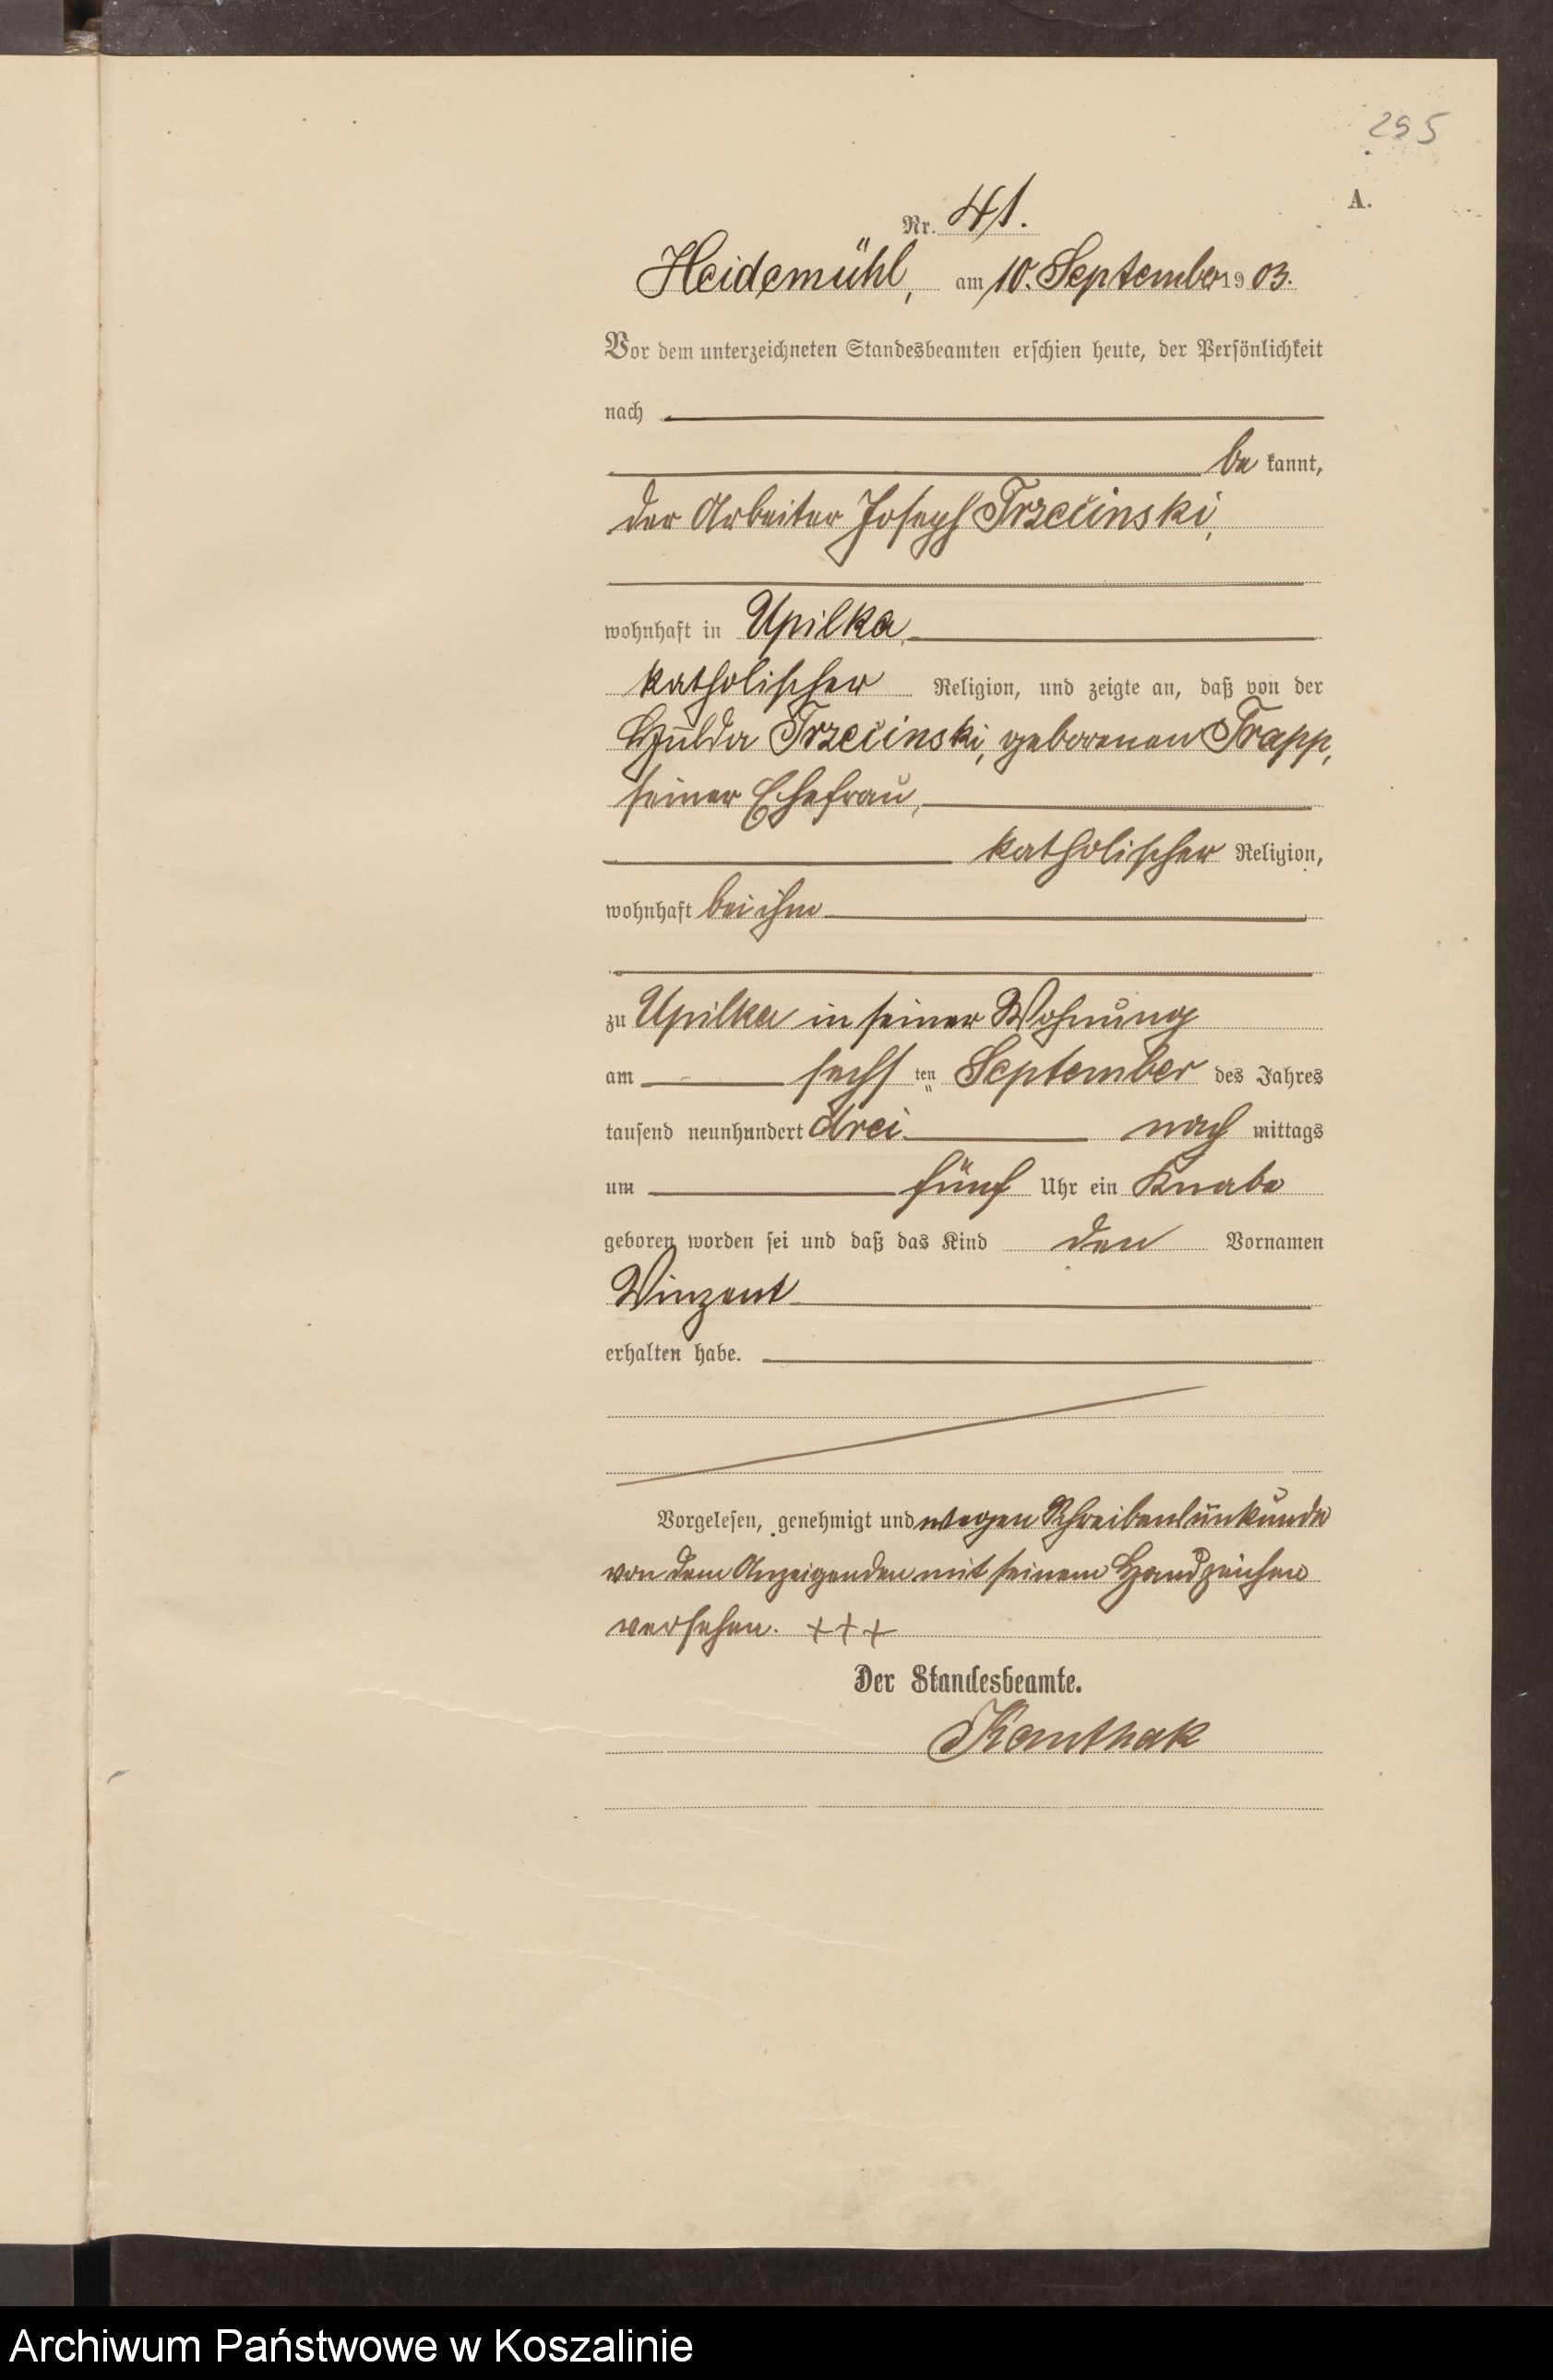 295
A.
Nr. 41.
Heidemühl, am 10. September 1903.
Vor dem unterzeichneten Standesbeamten erschien heute, der Persönlichkeit
nach
be kannt,
der Arbeiter Joseph Trzecinski,
wohnhaft in Upilka,
katholischer Religion, und zeigte an, daß von der
Hulda Trzecinski, geborenen Trapp,
seiner Ehefrau,
katholischer Religion,
wohnhaft bei ihm
zu Upilka in seiner Wohnung
am sechsten September des Jahres
tausend neunhundert drei nach mittags
um fünf Uhr ein Knabe
geboren worden sei und daß das Kind den Vornamen
Vinzent
erhalten habe.
Vorgelesen, genehmigt und wegen Schreibensunkunde
von dem Anzeigenden mit seinem Handzeichen
versehen. +++
Der Standesbeamte.
Kanthak
Archiwum Państwowe w Koszalinie